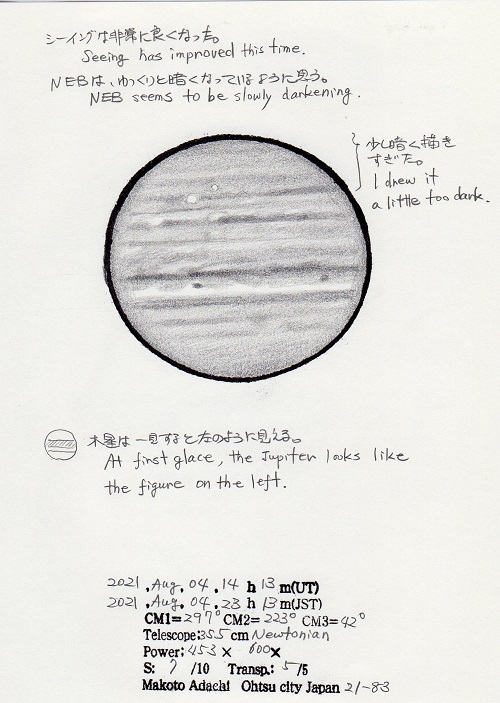 シーイングは非常に良くなった。
Seeing has improved this time.
NEBは、ゆっくりと暗くなっているように思う。
NEB seems to be slowly darkening.
少し暗く描き
すぎた。
I drew it
a little too dark.
木星は一見すると左のように見える。
At first glace, the Jupiter looks like
the figure on the left.
2021 . Aug. 04 . 14 h 13 m(UT)
2021 . Aug. 04 . 23 h 13 m(JST)
CM1=297° CM2=223° CM3=42°
Telescope:355 cm Newtonian
Power: 453 × 600×
S: 7 /10 Transp.: 5 /5
Makoto Adachi Ohtsu city Japan 21-83